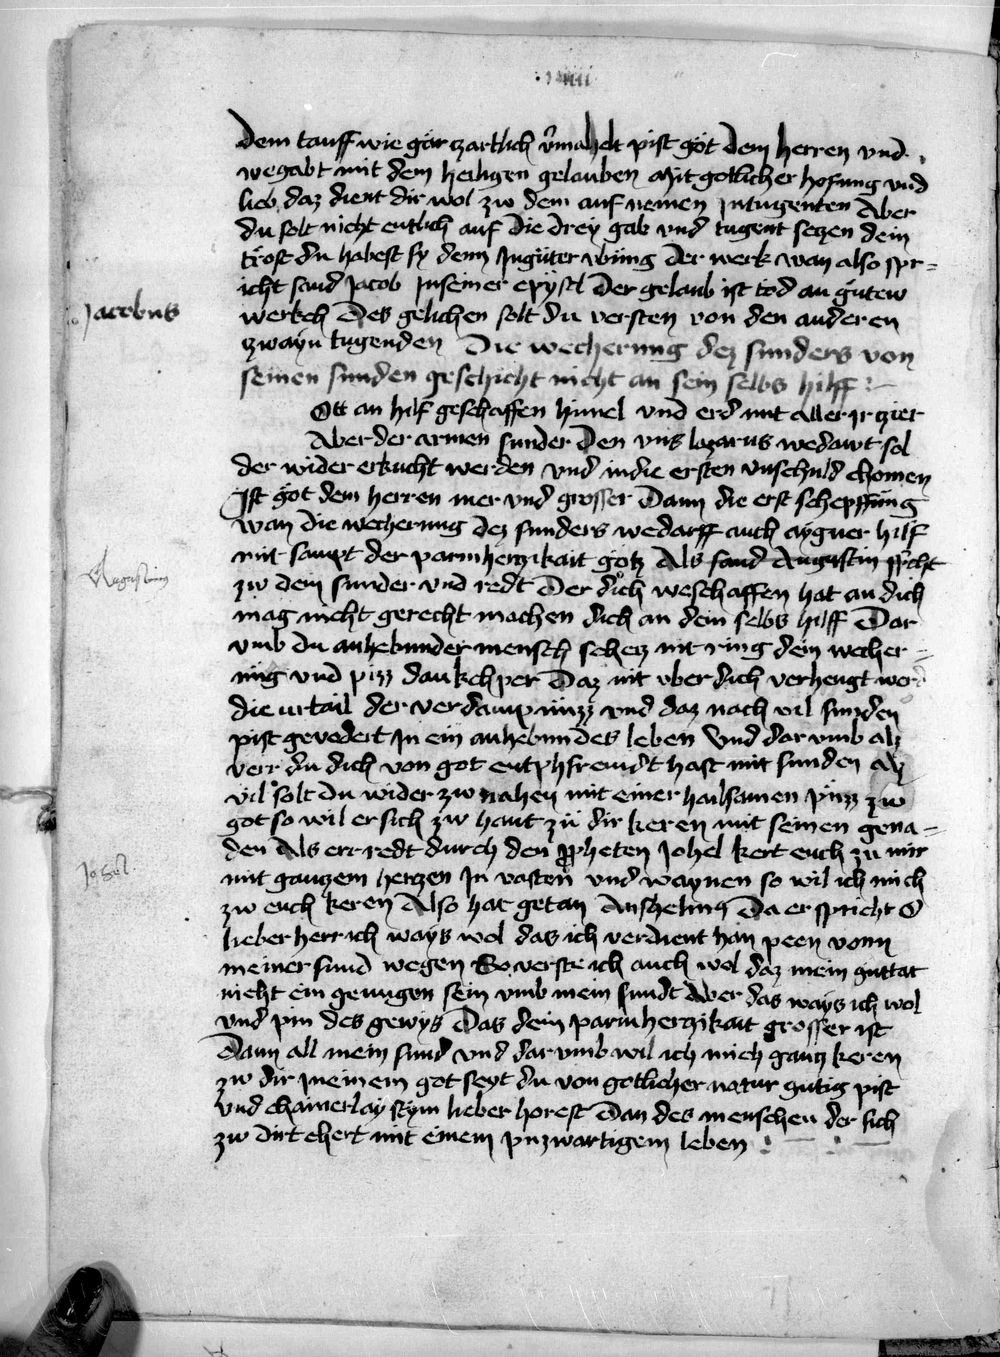 dem tauff wie gar zartlich vͬmahelt pist got dem herren vnd
wegabt mit dem heiligen gelauben Mit gotlicher hofung vnd
lieb daz dient dir wol zw dem auf nemen Jn tugenten Aber
du solt nicht entlich auf die drey gab vnd tugent seczen dein
trost du habest sy denn Jn guter vbung der werk wan also spr=
icht sand Jacob Jn seiner epystl Der gelaub ist tod an guten
Jacobus
werkch Des gelichen solt du versten von den anderen
zwayn tugenden Die wecherung dez sunders von
seinen sunden geschicht nicht an sein selbs hilff
Ott an hilf geschaffen himel vnd erd mit aller Jr zier
Aber der armen sunder den vns lazarus wedawt sol
der wider erkucht werden vnd in die ersten vnschuld chomen
Jst got dem herren mer vnd grosser Dann die erst schepffung
wan die wecherung dez sunders wedarff auch aygner hilf
mit sampt der parmherzikait gotz Als sand Augustin spͥcht
Augustinus
zw dem sunder vnd redt Der dich weschaffen hat an dich
mag nicht gerecht machen dich an dein selbs hilff Dar
vmb du anhebunder mensch schecz nit ring dein wecher=
ung vnd piss dankchper Daz nit vber dich verhengt werd
die vrtail der verdampnuzz vnd daz nach vil sunden
pist gevodert Jn ein anhebundes leben Vnd dar vmb alz
verr du dich von got entphfremdt hast mit sunden alz
vil solt du wider zw nahen mit einer hailsamen puzz zw
got so wil er sich zw hant zu dir keren mit seinen gena=
den Als err redt durch den propheten Johel kert euch zu mir
Johel
mit ganczem herczen Jn vasten vnd waynen so wil ich mich
zw euch keren Also hat getan Anshelmus Da er spricht O
lieber herr ich ways wol das ich verdient han peen vonn
meiner sund wegen So verste ich auch wol daz mein guttat
nicht ein genugen sein vmb mein sundt Aber das ways ich wol
vnd pin des gewys Das dein parmherzikait grosser ist
Dann all mein sund vnd dar vmb wil ich mich gancz keren
zw dir meinem got seyt du von gotlicher natur gutig pist
vnd chainerlay stym lieber horest Dan des menschen der sich
zw dir chert mit einem puzwartigem leben